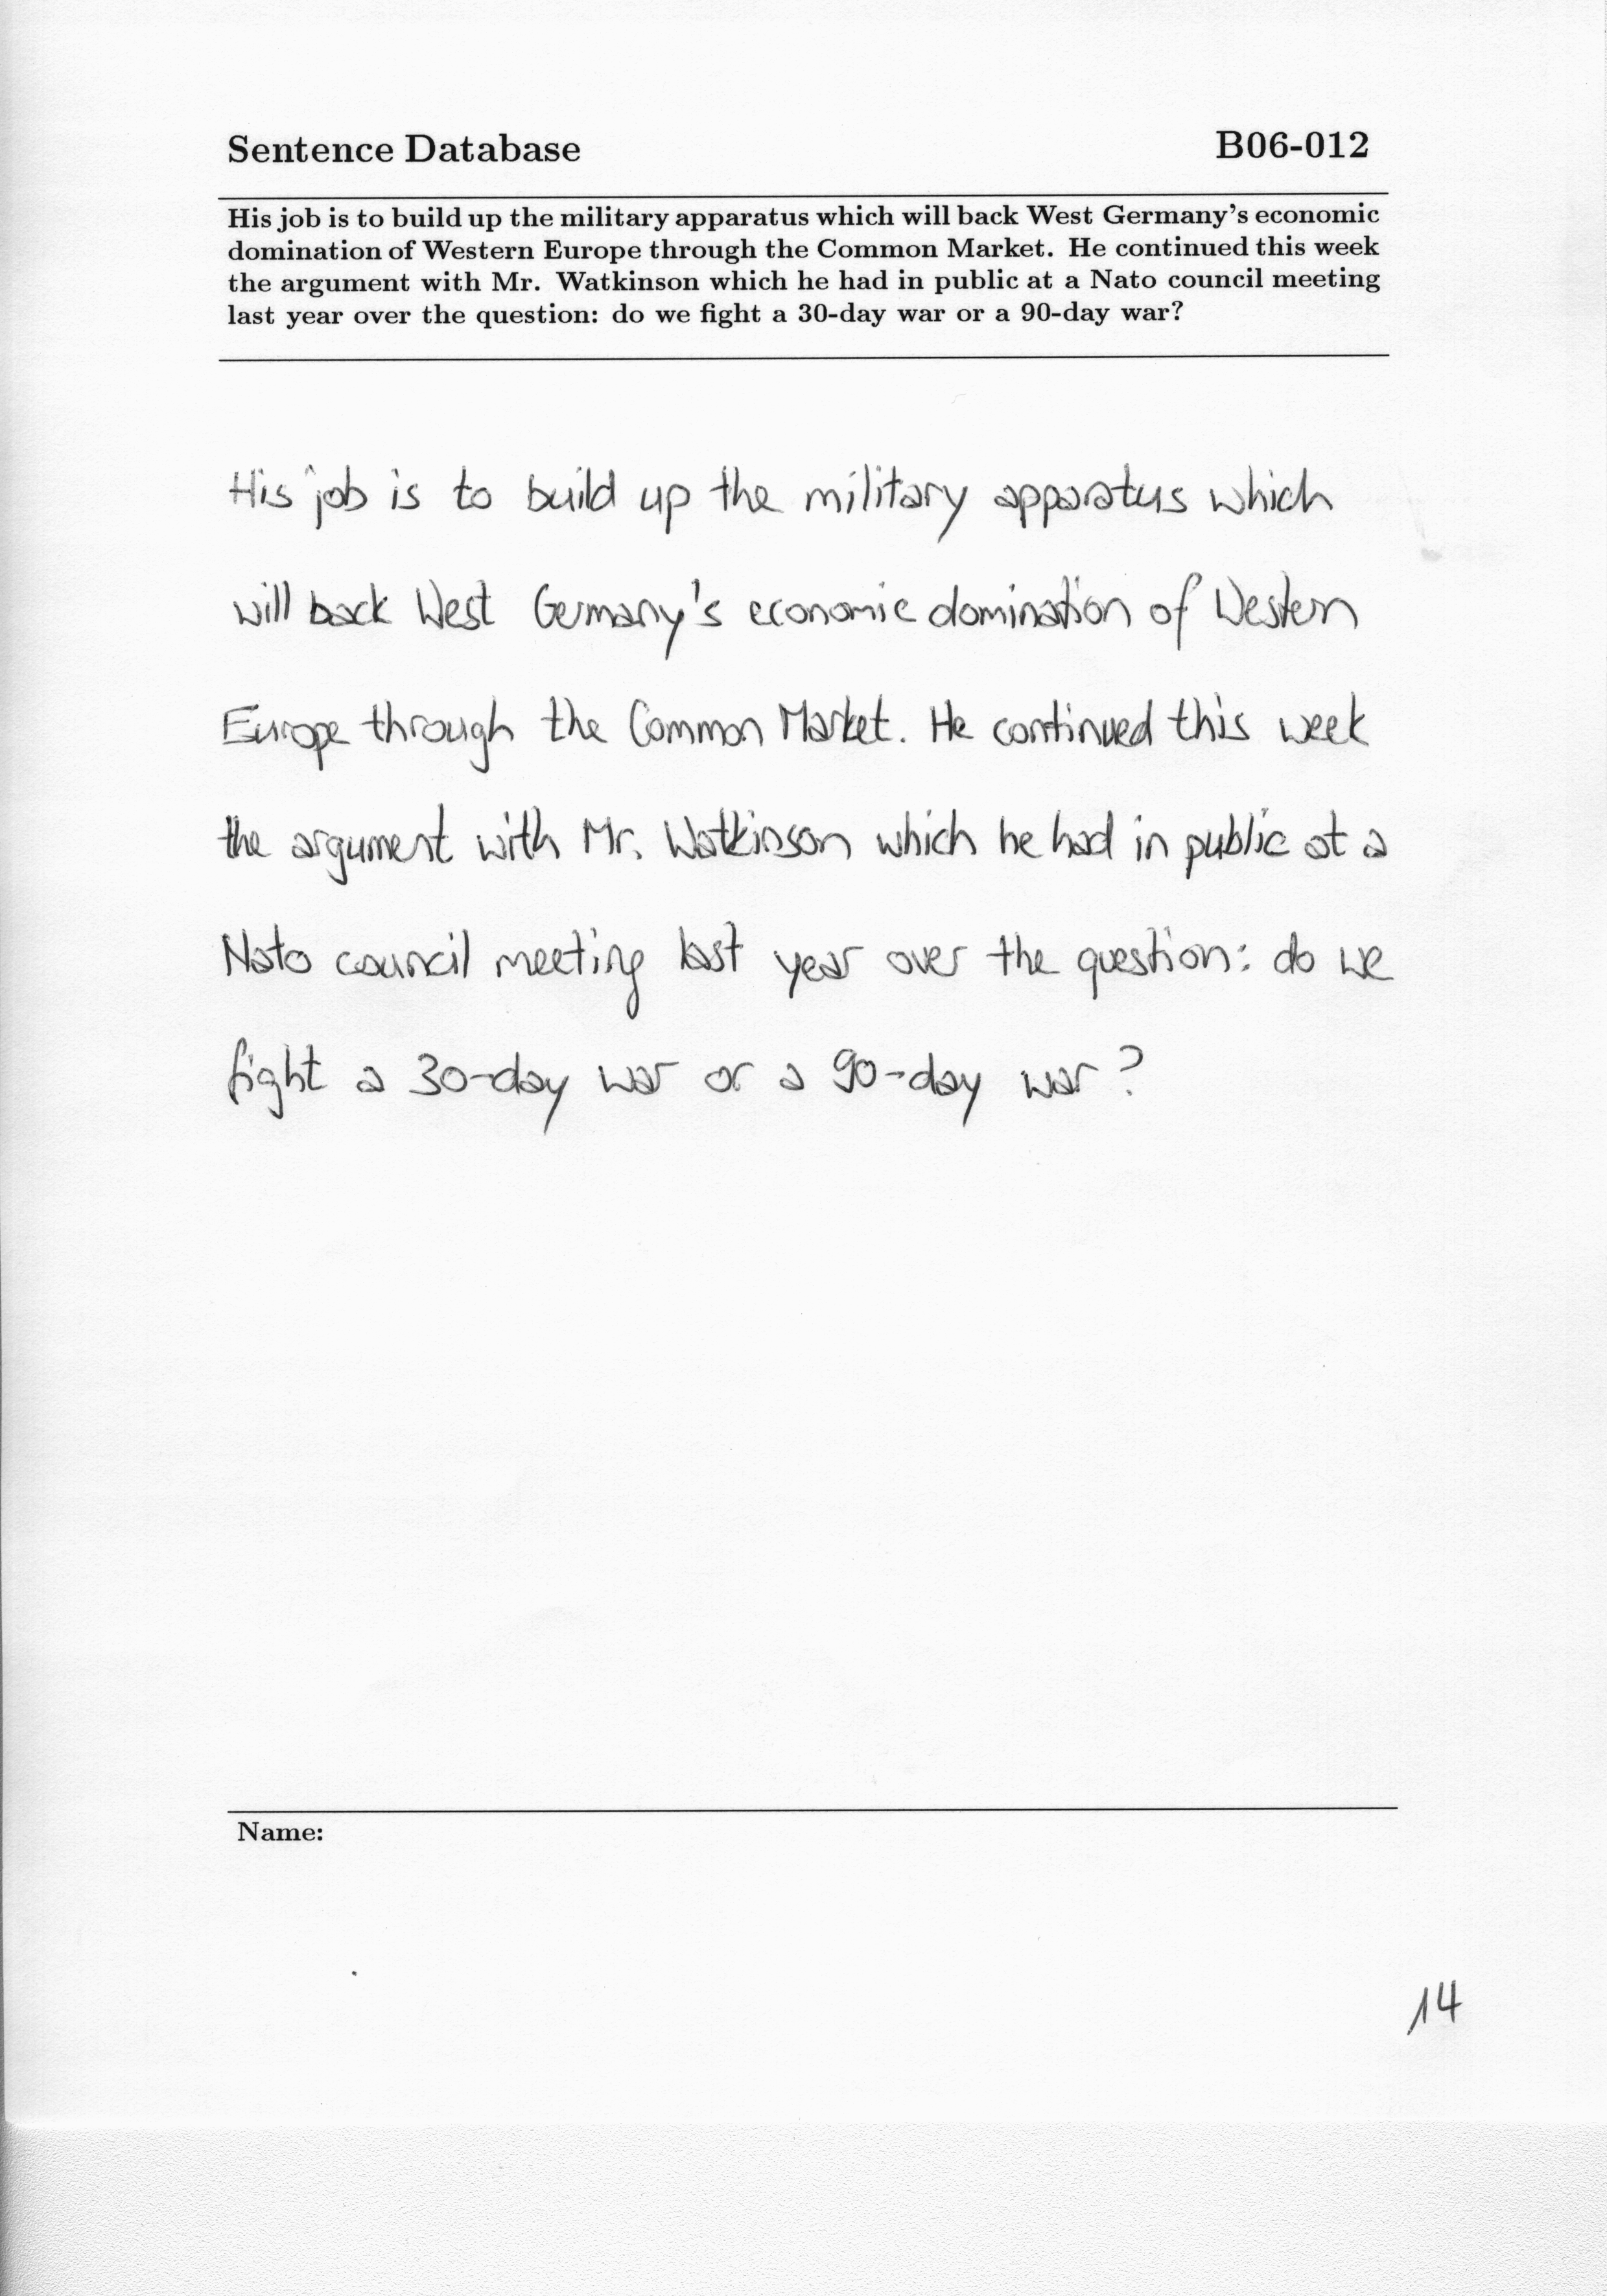 Sentence Database B06-012
His job is to build up the military apparatus which will back West Germany's economic
domination of Western Europe through the Common Market. He continued this week
the argument with Mr. Watkinson which he had in public at a Nato council meeting
last year over the question: do we fight a 30-day war or a 90-day war?
His job is to build up the military apparatus which
will back West Germany's economic domination of Western
Europe through the Common Market. He continued this week
the argument with Mr. Watkinson which he had in public at a
Nato council meeting last year over the question: do we
fight a 30-day war or a 90-day war?
Name:
14